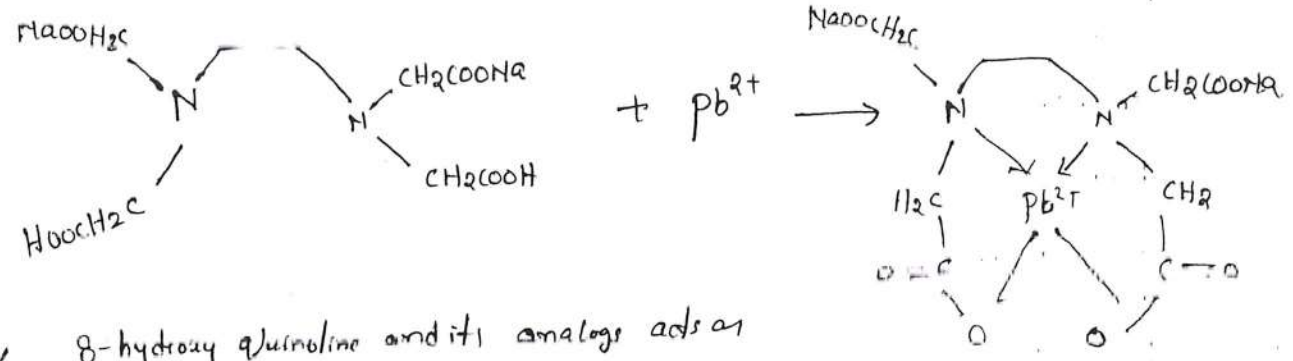 NaOOCH₂C
N
N
CH₂COONa
CH₂COOH
HOOCH₂C
+ Pb²⁺ →
NaOOCH₂C
N
N
CH₂COONa
H₂C
Pb²⁺
CH₂
O = C
C - O
O
O
8-hydroxy quinoline and its analogs acts as